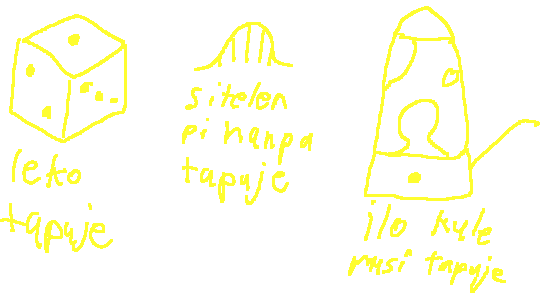 leko
tapuje
sitelen
pi nanpa
tapuje
ilo kule
musi tapuje